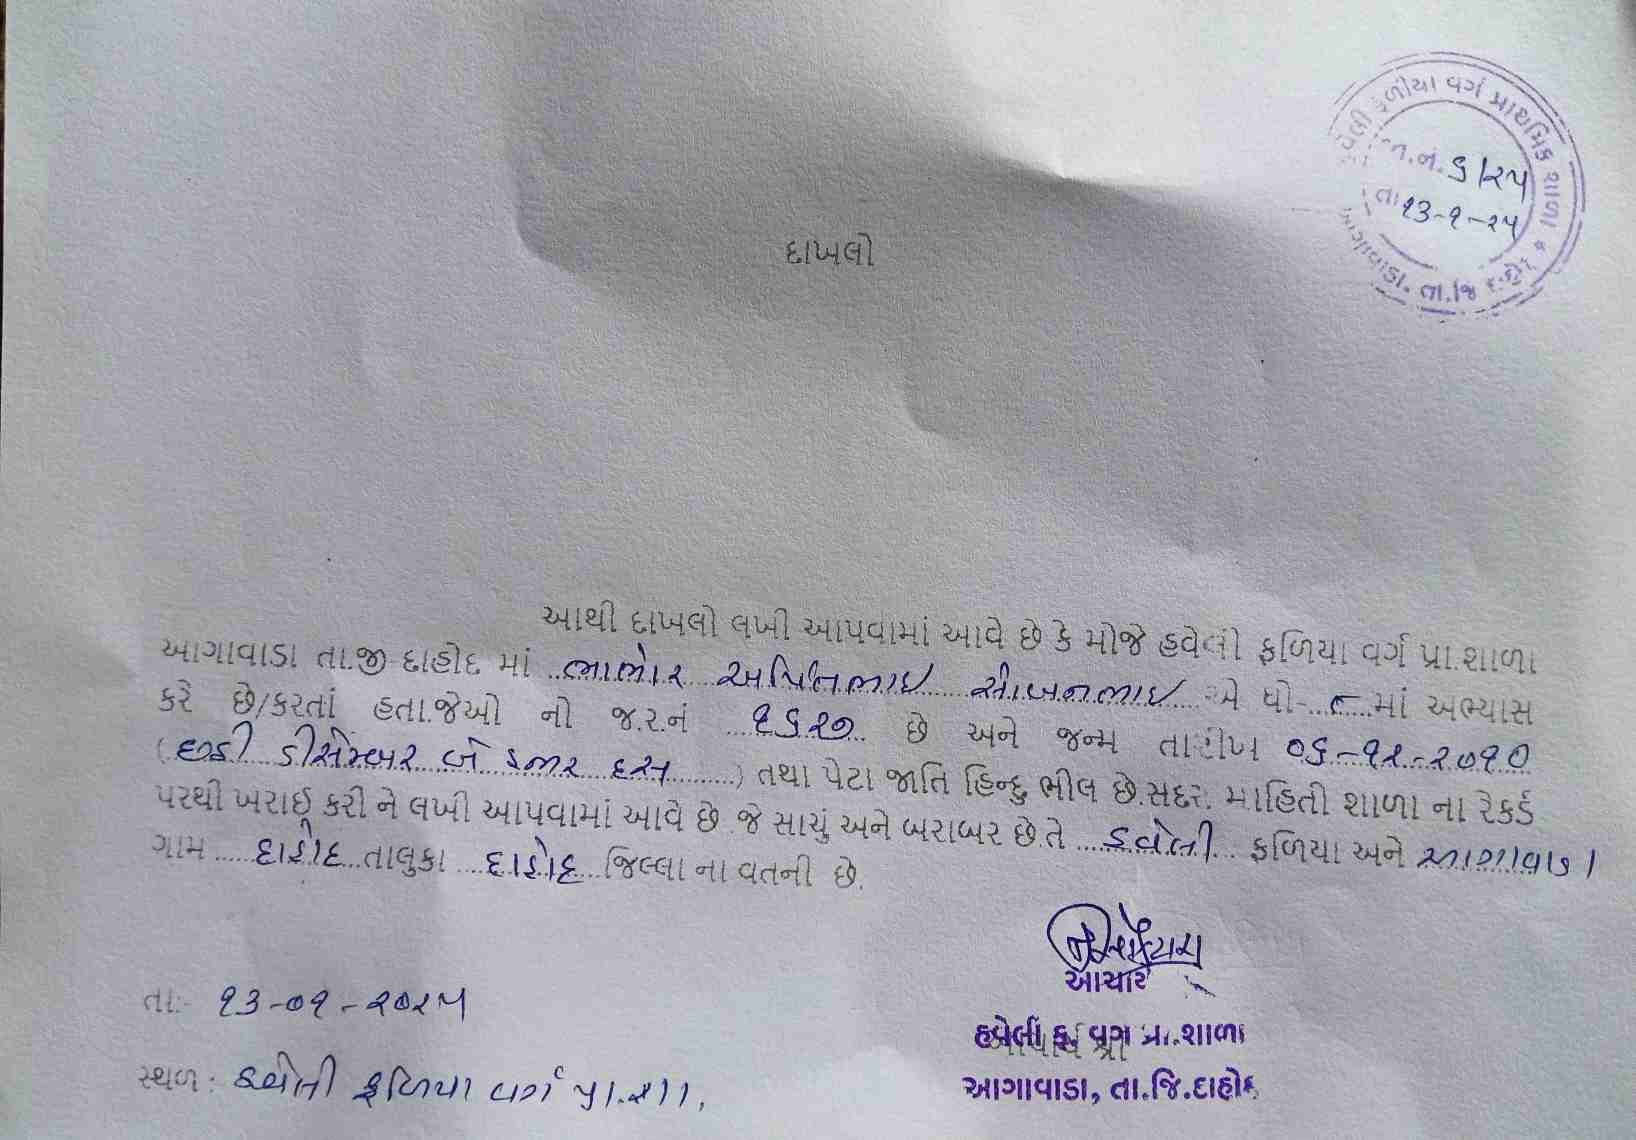 ફળીયા વર્ગ પ્રાથમિક શાળા
જા.નં. ૬/૨૫
તા ૧૩-૧-૨૫
આગાવાડા. તા.જિ. દાહોદ *
દાખલો
આથી દાખલો લખી આપવામાં આવે છે કે મોજે હવેલી ફળિયા વર્ગ પ્રા.શાળા
આગાવાડા તા.જી-દાહોદ માં ..ભાભોર અર્પિતભાઇ .... એ ધો-..૮..માં અભ્યાસ
કરે છે/કરતાં હતા.જેઓ ની જ.ર.નં ...૧૬૨૭.. છે અને જન્મ તારીખ ૦૬-૧૨-૨૦૧૦
(છઠ્ઠી ડીસેમ્બર બે હજાર દસ.......) તથા પેટા જાતિ હિન્દુ ભીલ છે.સદર. માહિતી શાળા ના રેકર્ડ
પરથી ખરાઈ કરી ને લખી આપવામાં આવે છે જે સાચું અને બરાબર છે.તે ...હવેલી.. ફળિયા અને આગાવાડા
ગામ .....દાહોદ...તાલુકા ...દાહોદ...જિલ્લા ના વતની છે.
આચાર્ય
તા:- ૧૩-૦૧-૨૦૨૫
હવેલી ફ. વર્ગ પ્રા.શાળા
આચાર્ય શ્રી
સ્થળ: હવેલી ફળિયા વર્ગ પ્રા.શા.
આગાવાડા, તા.જિ.દાહોદ